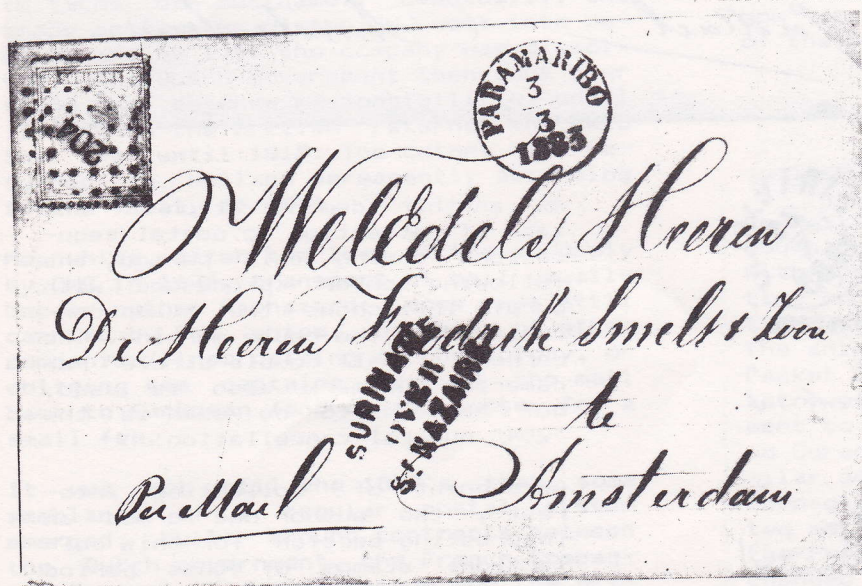 204
PARAMARIBO
3
3
1883
WelEdele Heeren
De Heeren Fredrik Smels & Zoon
SURINAME
OVER
St NAZAIRE
te
Per Mail
Amsterdam